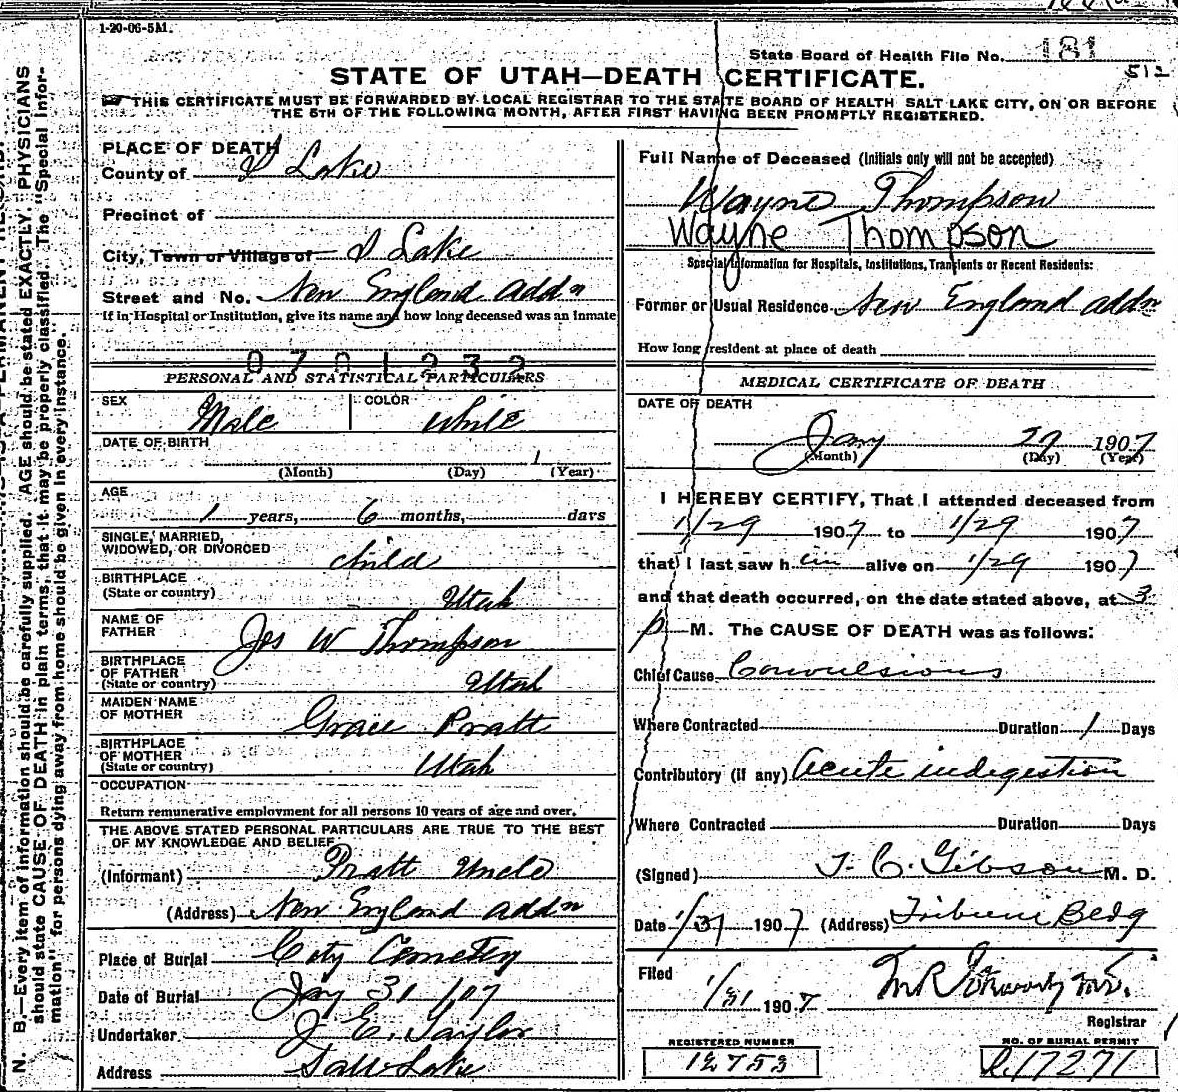 1-20-06-5M.
State Board of Health File No. 181
512
STATE OF UTAH—DEATH CERTIFICATE.
THIS CERTIFICATE MUST BE FORWARDED BY LOCAL REGISTRAR TO THE STATE BOARD OF HEALTH SALT LAKE CITY, ON OR BEFORE
THE 5TH OF THE FOLLOWING MONTH, AFTER FIRST HAVING BEEN PROMPTLY REGISTERED.
PLACE OF DEATH
County of S Lake
Precinct of
City, Town or Village of S Lake
Street and No. New England addn
If in Hospital or Institution, give its name and how long deceased was an inmate
0701232
PERSONAL AND STATISTICAL PARTICULARS
SEX Male COLOR White
DATE OF BIRTH
1
(Month) (Day) (Year)
AGE
1 years, 6 months, days
SINGLE, MARRIED,
WIDOWED, OR DIVORCED child
BIRTHPLACE
(State or country) Utah
NAME OF
FATHER Jos W Thompson
BIRTHPLACE
OF FATHER
(State or country) Utah
MAIDEN NAME
OF MOTHER Grace Pratt
BIRTHPLACE
OF MOTHER
(State or country) Utah
OCCUPATION
Return remunerative employment for all persons 10 years of age and over.
THE ABOVE STATED PERSONAL PARTICULARS ARE TRUE TO THE BEST
OF MY KNOWLEDGE AND BELIEF
(Informant) Pratt Uncle
(Address) New England addn
Place of Burial City Cemetry
Date of Burial Jay 31 1/07
Undertaker J. E. Taylor
Address Salt Lake
Full Name of Deceased (Initials only will not be accepted)
Wayne Thompson
Wayne Thompson
Special Information for Hospitals, Institutions, Transients or Recent Residents:
Former or Usual Residence New England addn
How long resident at place of death
MEDICAL CERTIFICATE OF DEATH
DATE OF DEATH
Jany 29 1907
(Month) (Day) (Year)
I HEREBY CERTIFY, That I attended deceased from
1/29 1907 to 1/29 1907
that I last saw h im alive on 1/29 1907
and that death occurred, on the date stated above, at 3
p M. The CAUSE OF DEATH was as follows:
Chief Cause Convulsions
Where Contracted Duration 1 Days
Contributory (if any) Acute indigestion
Where Contracted Duration Days
(Signed) J. C. Gibson M. D.
Date 1/31 1907 (Address) Tribune Bldg
Filed
1/31 1907
Registrar
REGISTERED NUMBER
12753
NO. OF BURIAL PERMIT
C.17271
N. B.—Every item of information should be carefully supplied. AGE should be stated EXACTLY. PHYSICIANS
should state CAUSE OF DEATH in plain terms, that it may be properly classified. The "Special Infor-
mation" for persons dying away from home should be given in every instance.